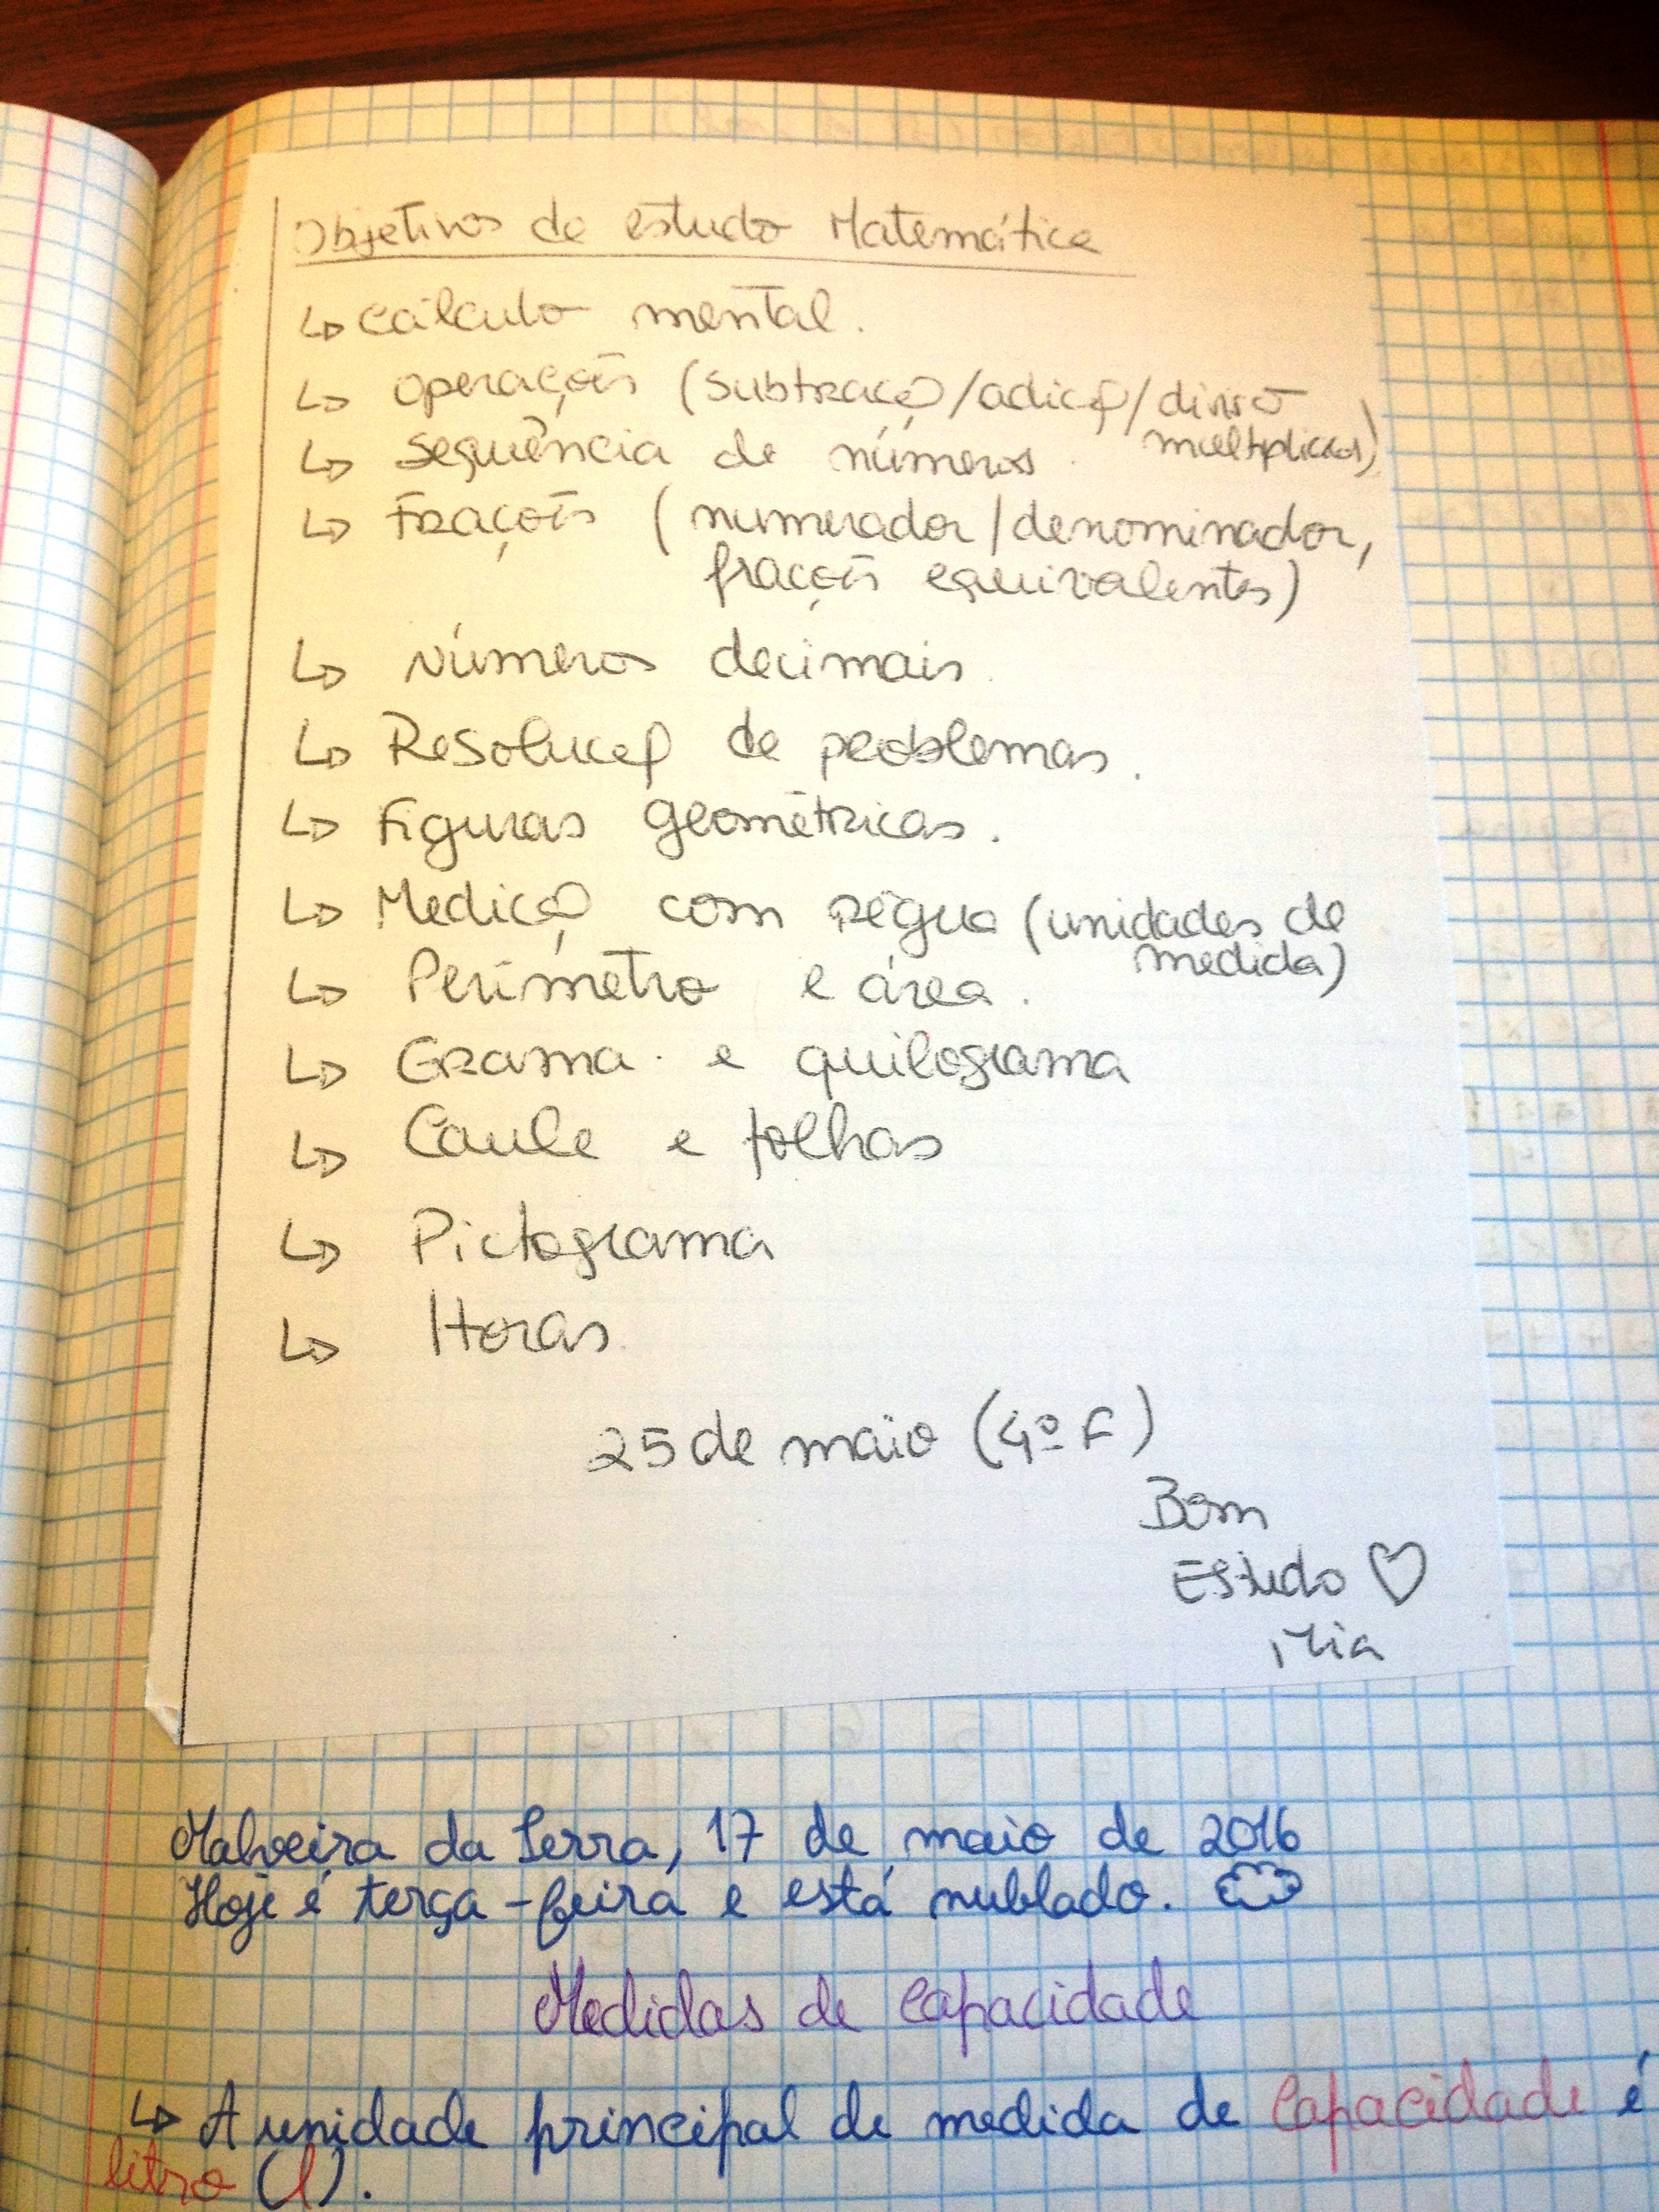 Objetivos de estudo Matemática
↳ Cálculo mental.
↳ Operações (subtração/adição/divisão
multiplicação)
↳ Sequência de números.
↳ Frações (numerador/denominador,
frações equivalentes)
↳ Números decimais.
↳ Resolução de problemas.
↳ Figuras geométricas.
↳ Medição com régua (unidades de
medida)
↳ Perímetro e área.
↳ Grama e quilograma
↳ Caule e folhas
↳ Pictograma
↳ Horas.
25 de maio (4º F)
Bom
Estudo ♡
Malveira da Serra, 17 de maio de 2016
Hoje é terça-feira e está nublado.
Medidas de capacidade
↳ A unidade principal de medida de capacidade é
litro (l).